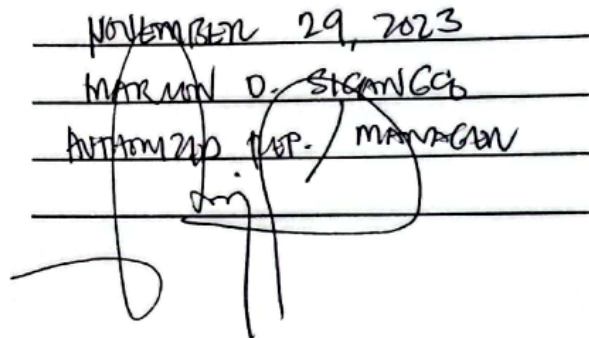 NOVEMBER 29, 2023
MARLON D. SIGANGCO
AUTHORIZED REP. / MANAGER